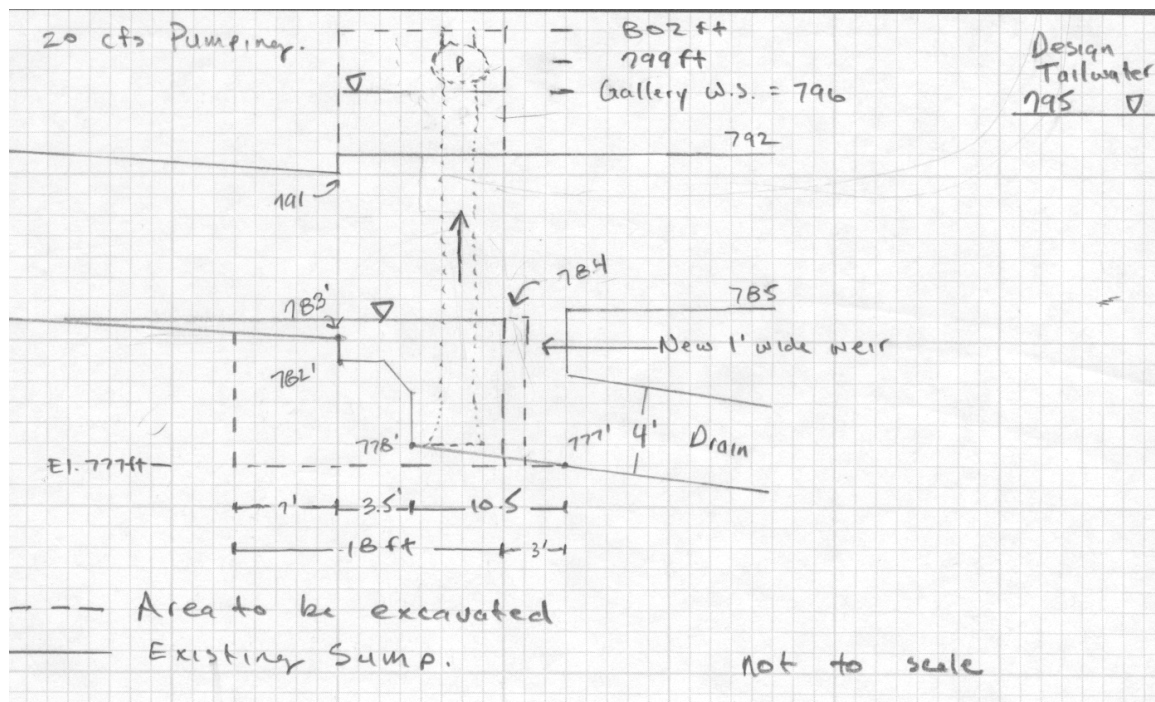 20 cfs Pumping.
P
802 ft
799 ft
Gallery W.S. = 796
Design
Tailwater
795
792
791
784
783'
785
New 1' wide weir
782'
778'
777'
4'
Drain
El. 777ft
7'
3.5'
10.5
18 ft
3'
Area to be excavated
Existing Sump.
not to scale